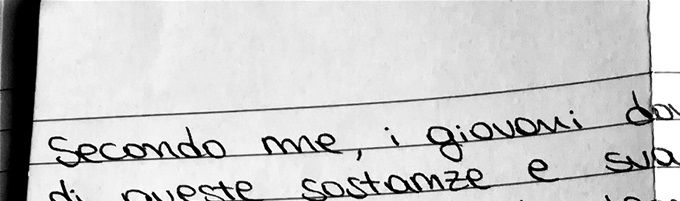 Secondo me, i giovani do
di queste sostanze e sua